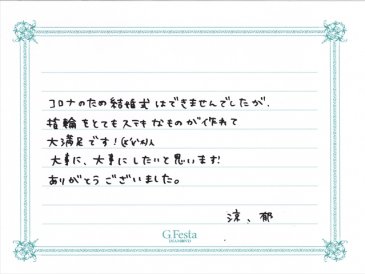 コロナのため結婚式はできませんでしたが、
指輪をとてもステキなものが作れて
大満足です!
大事に、大事にしたいと思います!
ありがとうございました。
涼、郁
G.Festa
DIAMOND